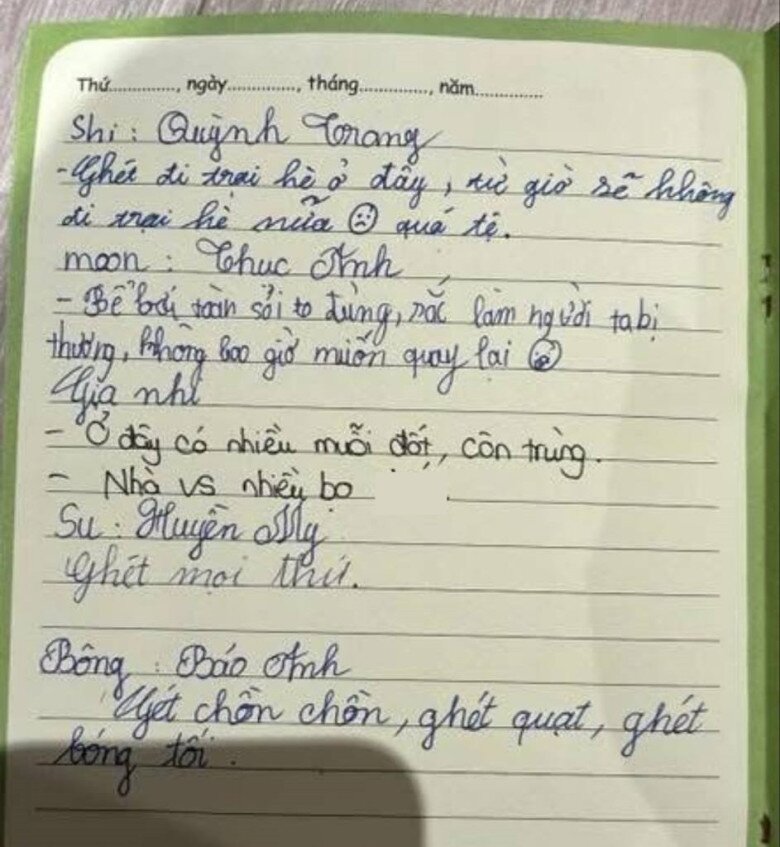 Thứ.............., ngày..............., tháng..............., năm...............
Shi : Quỳnh Trang
- Ghét đi trại hè ở đây, từ giờ sẽ không
đi trại hè nữa ☹ quá tệ.
moon : Thục Anh
- Bể bơi toàn sỏi to đùng, rác làm người ta bị
thương, không bao giờ muốn quay lại
Gia nhi
- Ở đây có nhiều muỗi đốt, côn trùng.
- Nhà vs nhiều bo
Su : Huyền My
Ghét mọi thứ.
Bông : Báo Anh
Gét chồn chồn, ghét quạt, ghét
bóng tối.